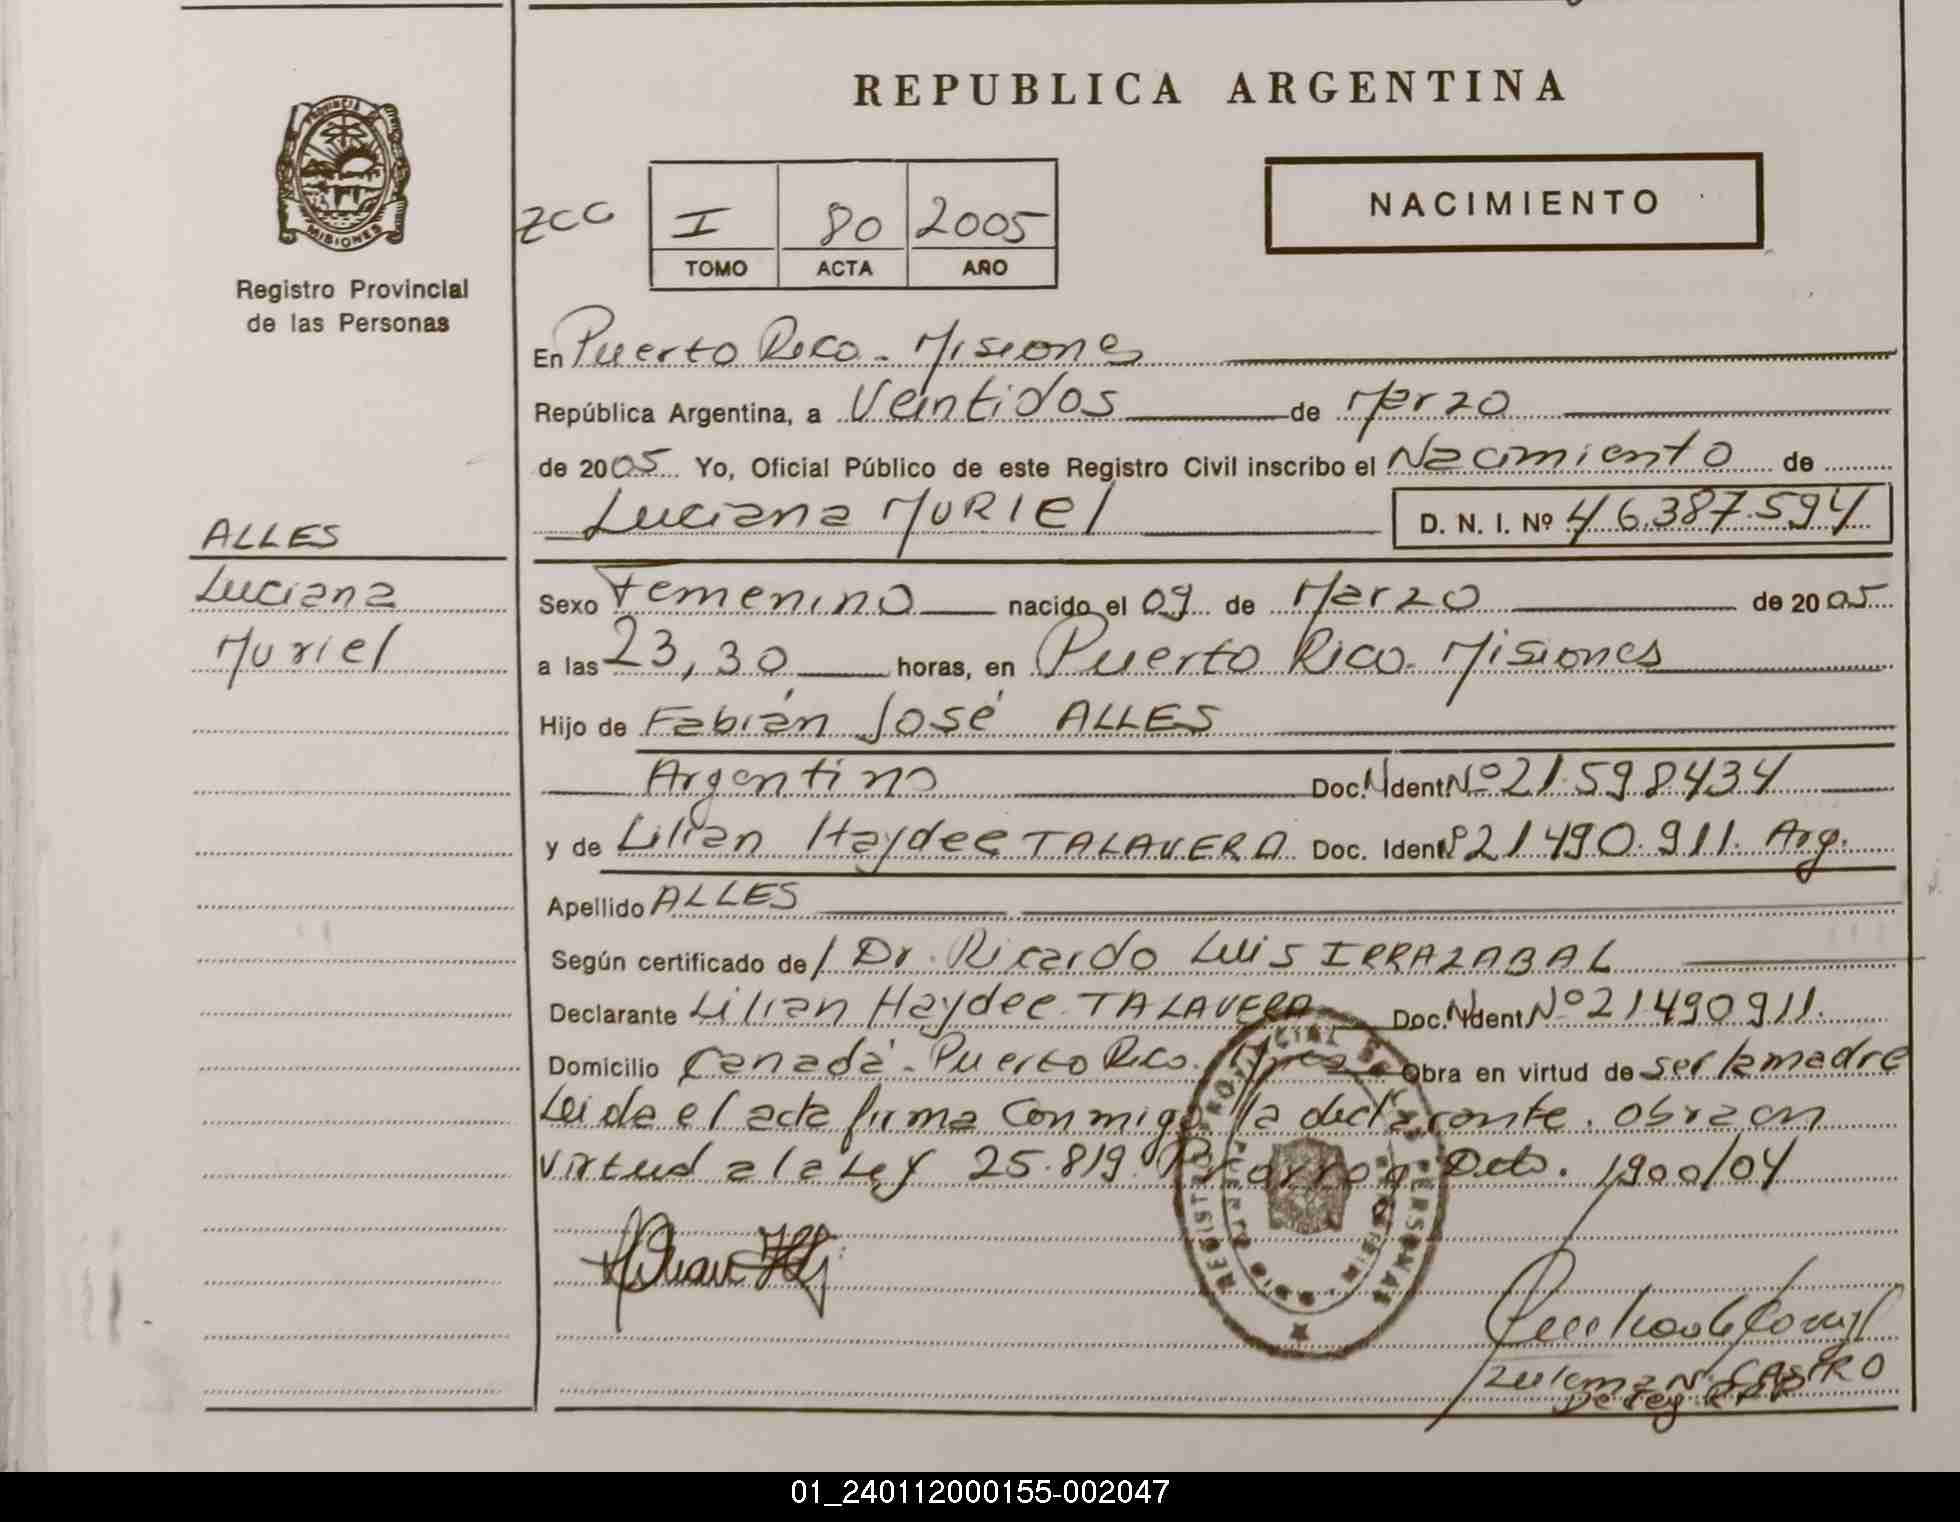 REPUBLICA ARGENTINA
PROVINCIA
MISIONES
Registro Provincial
de las Personas
ZCC
I 80 2005
TOMO ACTA AÑO
NACIMIENTO
En Puerto Rico - Misiones
República Argentina, a Veintidos de Marzo
de 2005 Yo, Oficial Público de este Registro Civil inscribo el Nacimiento de
Luciana MURIEL D. N. I. Nº 46.387.594
ALLES
Luciana
Muriel
Sexo Femenino nacido el 09 de Marzo de 2005
a las 23,30 horas, en Puerto Rico. Misiones
Hijo de Fabián José ALLES
Argentino Doc. Ident Nº 21.598434
y de Lilian Haydee TALAVERA Doc. Ident 21490.911. Arg.
Apellido ALLES
Según certificado de / Dr. Ricardo Luis IRRAZABAL
Declarante Lilian Haydee TALAVERA Doc. Ident Nº 21490911.
Domicilio Canadá - Puerto Rico. Obra en virtud de ser la madre
Leida el acta firma conmigo la declarante. Obra en
virtud a la Ley 25.819. Dcto. 1900/04
REGISTRO PROVINCIAL DE LAS PERSONAS
CASTRO
01_240112000155-002047